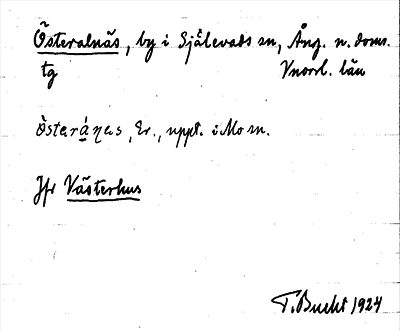 Österalnäs, by i Själevads sn, Ång. n. doms.
tg Vnorrl. län
östaránɛs, Er., uppt. i Mo sn.
Jfr Västerhus
T. Bucht 1924